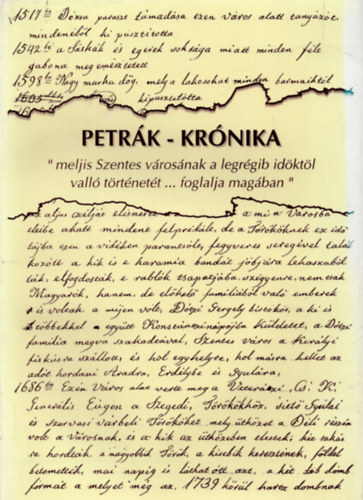 1517 Dózsa paraszt támadása ezen város alatt tanyázót
mindenéből ki pusztította
1542 a Sáskák és egerek soksága miatt minden féle
gabona megemésztetett
1598 Nagy marha dög, mely a lakosokat minden barmaiktól
1605 kipusztította
PETRÁK - KRÓNIKA
" meljis Szentes városának a legrégib idöktöl
valló történetét ... foglalja magában "
a mi a Városba
eleibe akadt mindent felprédált, de a Törököknek ez idő
tájba ezen a vidéken parancsoló, fegyveres seregével talál
kozott a kik is e haramia bandát
elfogdosták, e rablók csapatjába nem csak
Magyarok, hanem de előkelő familiából való emberek
is voltak, a mijen volt, Dóczi Gergely a ki is
többekkel együtt küldetett, a Dóczi
familia magva szakadtával, Szentes város a Királyi
fiskusra szállott, és hol egyhelyre, hol másra kellet az
adót hordani Aradra, Erdélybe és Gyulára,
1686 Ezen Város alatt verte meg a
Generális Eugen a Szegedi, Törökökhöz, siető Gyulai
és Szarvasi várbeli Törököket mely ütközet a Déli részin
volt a Városnak, és a kik az ütközetben elestek,
hordták a nagyobbat Török, a kisebbet keresztének, földel
betemették, mai napig is láthatott azt, a két domb
formát a melyet még az, 1739 körül harcz dombnak